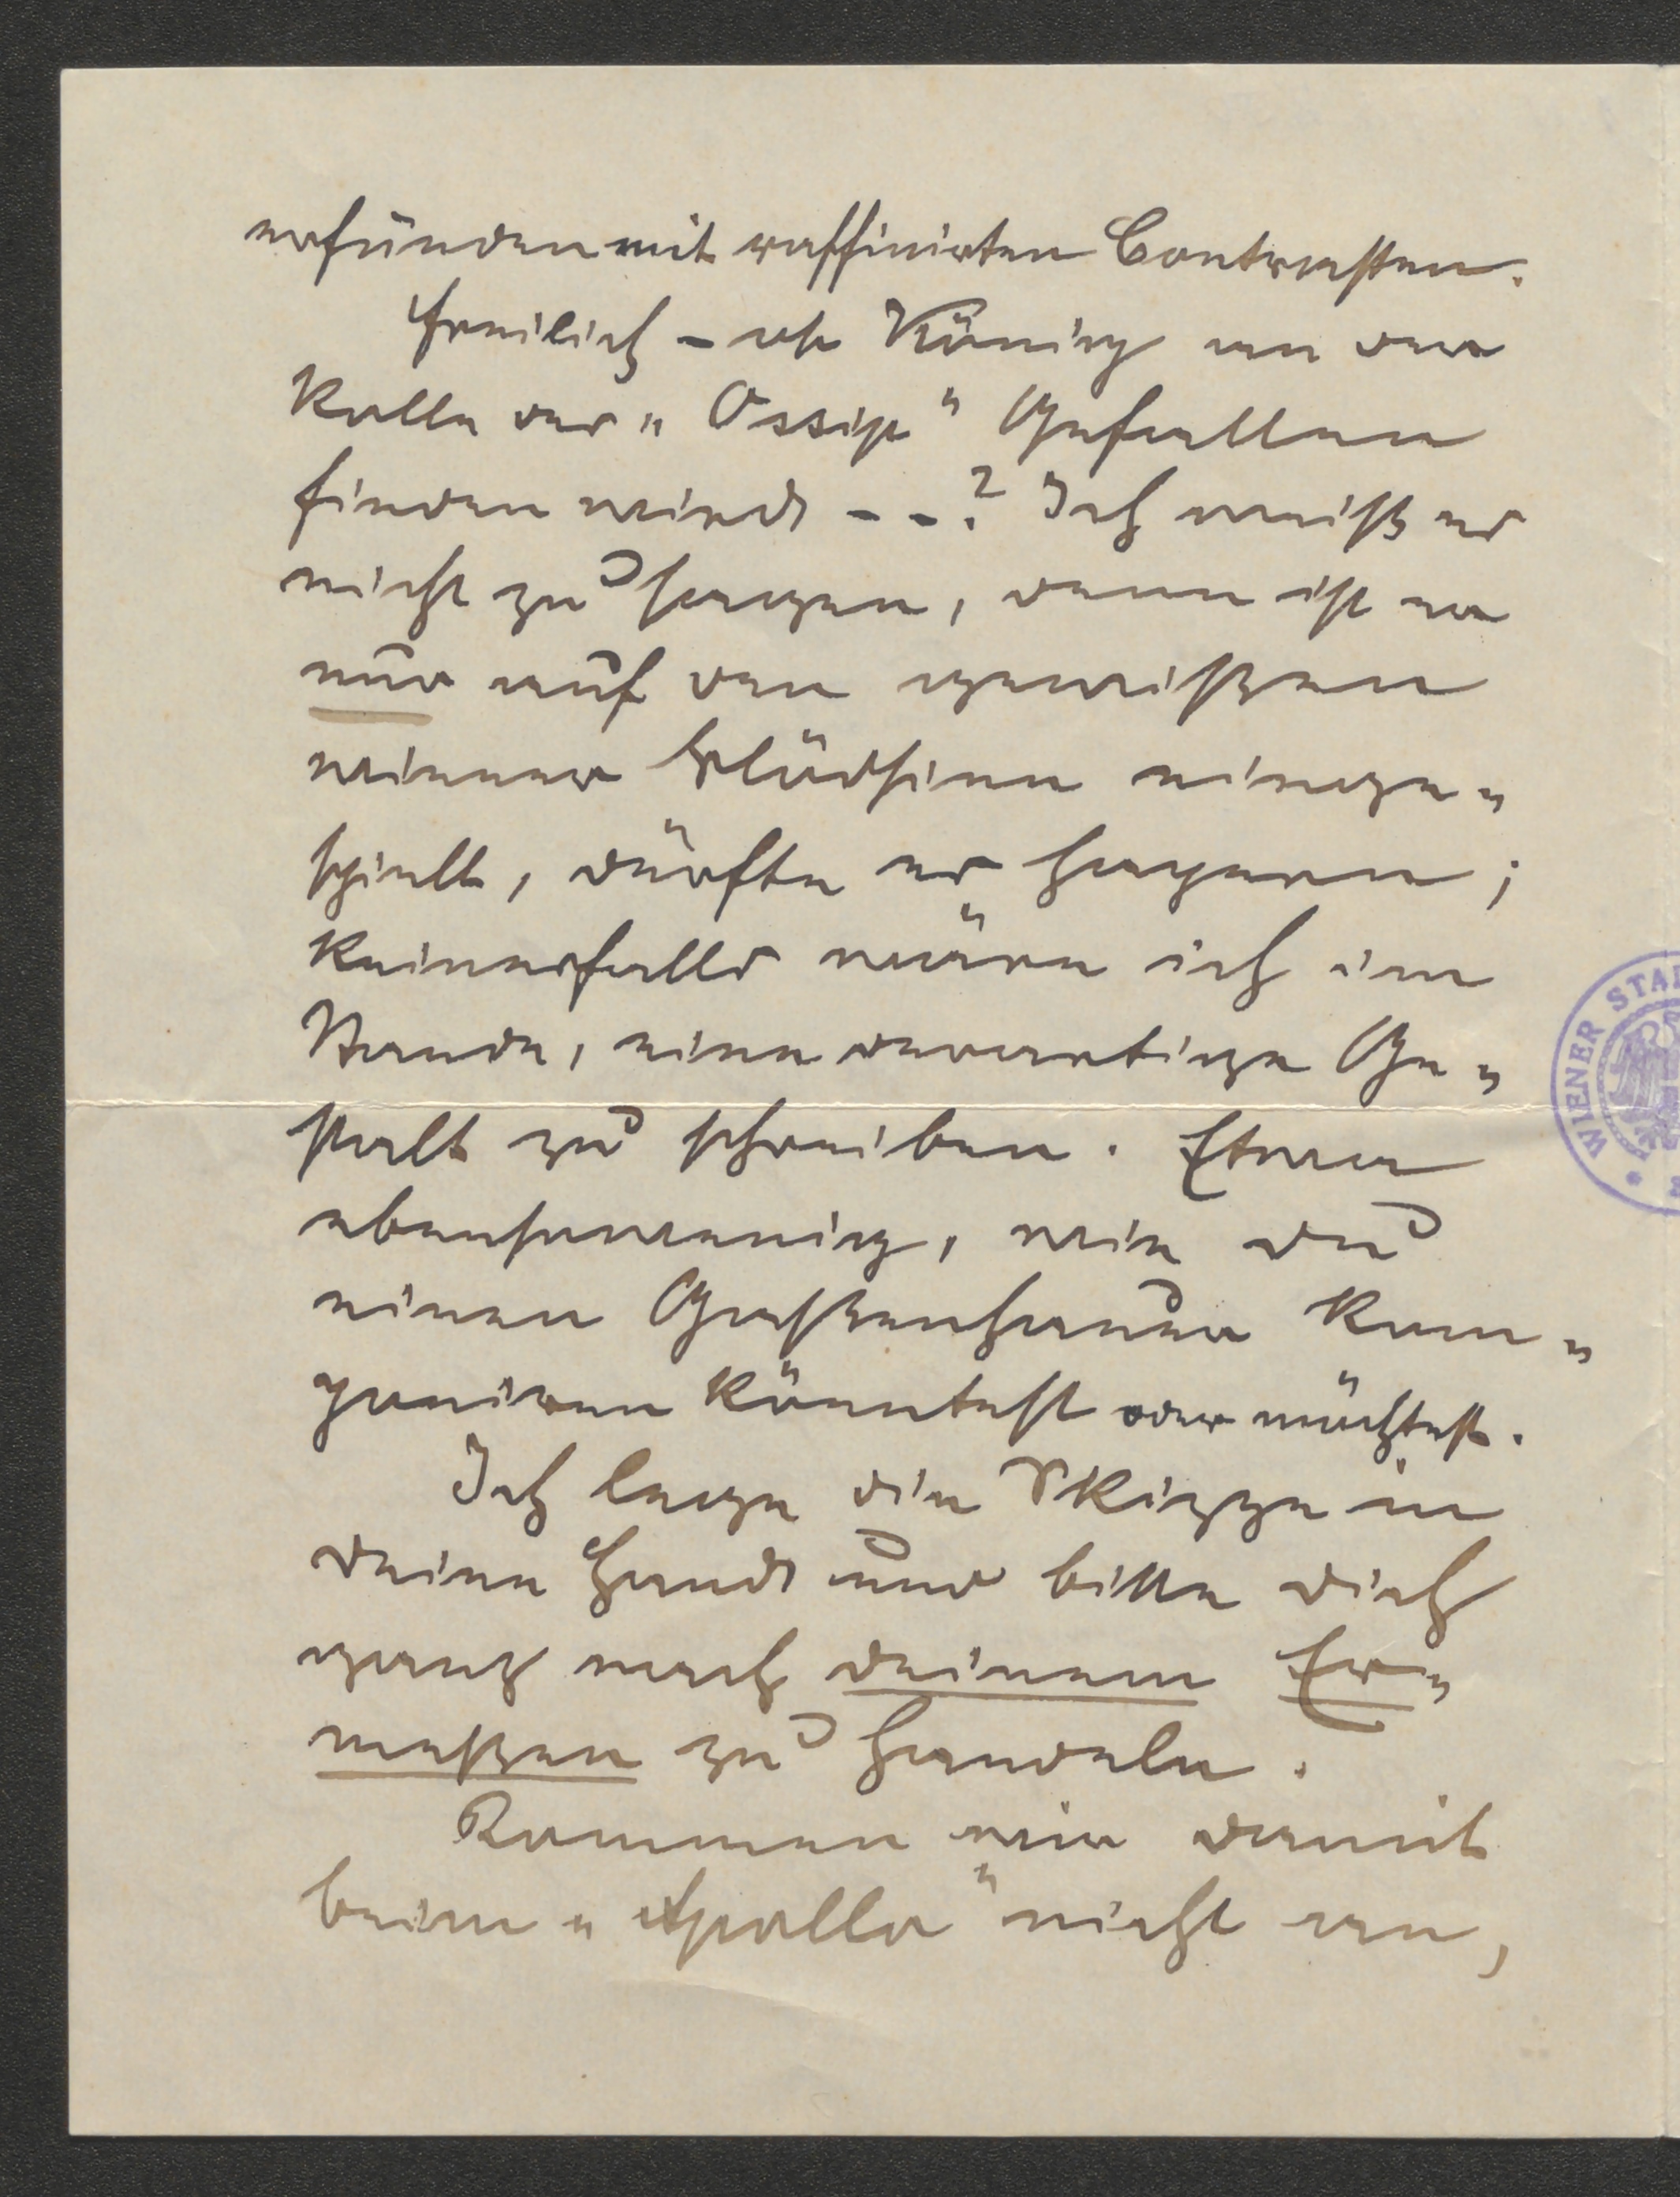 erfunden mit raffinirten Contrasten.
Freilich – ob König an der
Rolle des „Ossip" Gefallen
finden wird – –? Ich weiß es
nicht zu sagen, denn ist er
nur auf den gewißen
wiener Blödsinn einge„
spielt, dürfte es hapern;
keinesfalls wäre ich im
Stande, eine derartige Ge„
stalt zu schreiben. Etwa
ebensowenig, wie du
einen Gaßenhauer kom„
poniren könntest oder möchtest.
Ich lege die Skizze in
deine Hand und bitte dich
ganz nach deinem Er„
meßen zu handeln.
Kommen wir damit
beim „Apollo" nicht an,
WIENER STA